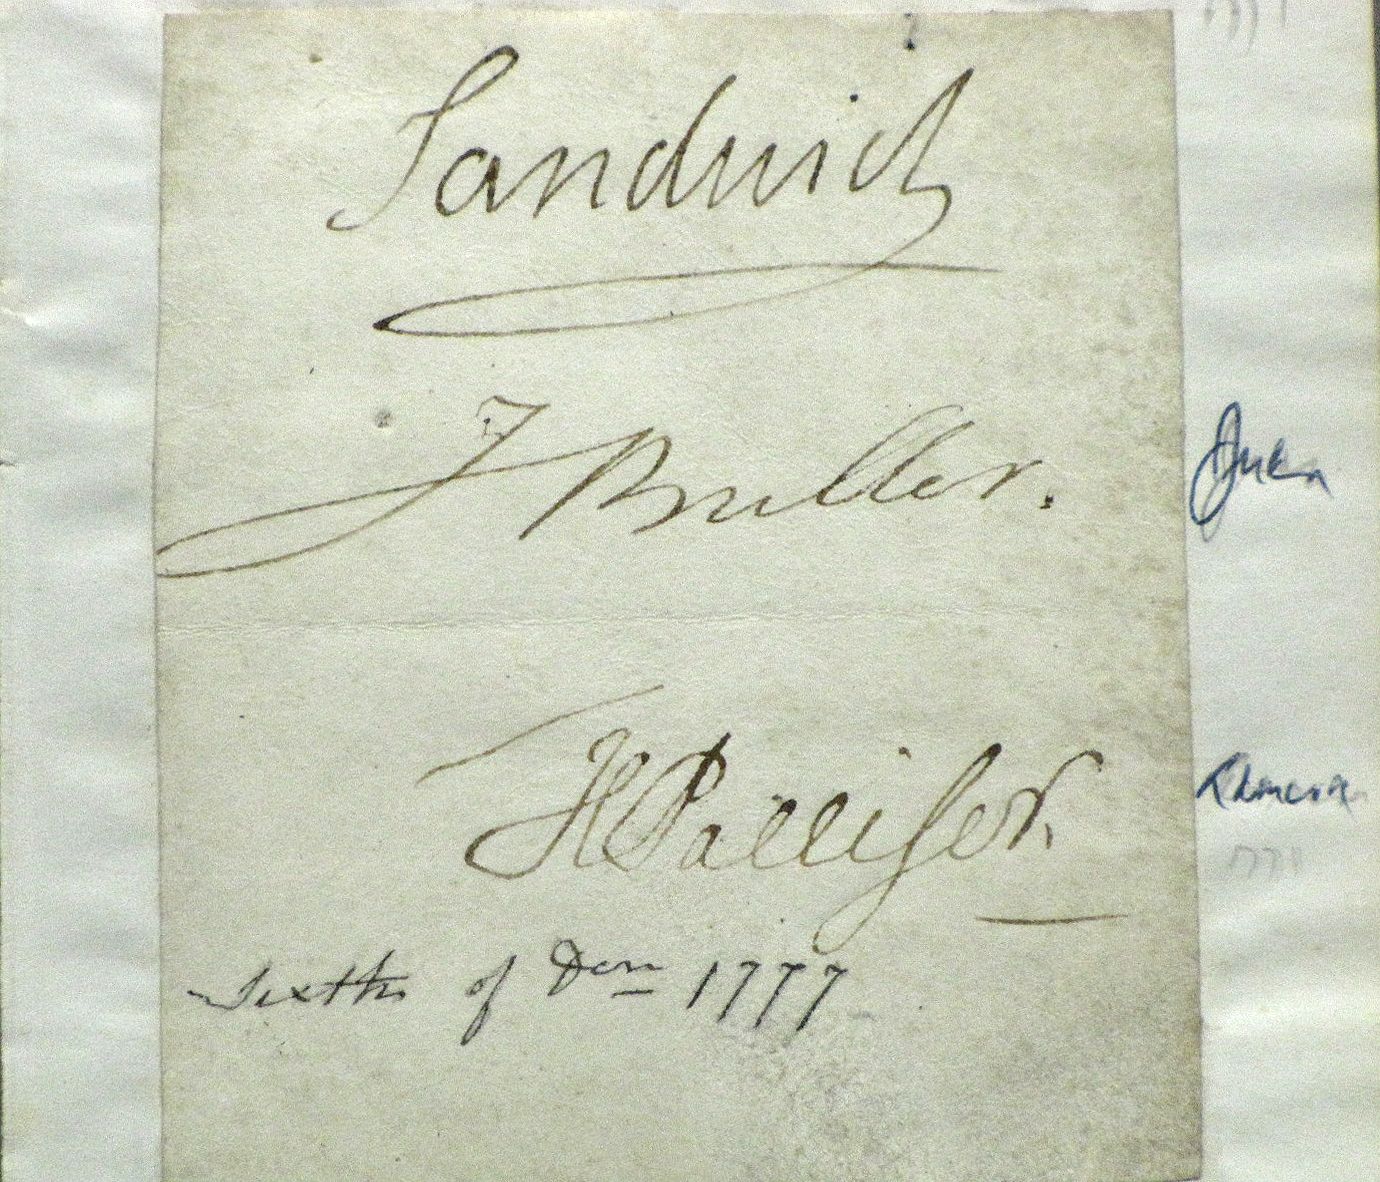 Sandwich
J Buller.
H Palliser.
Sixth of 1777